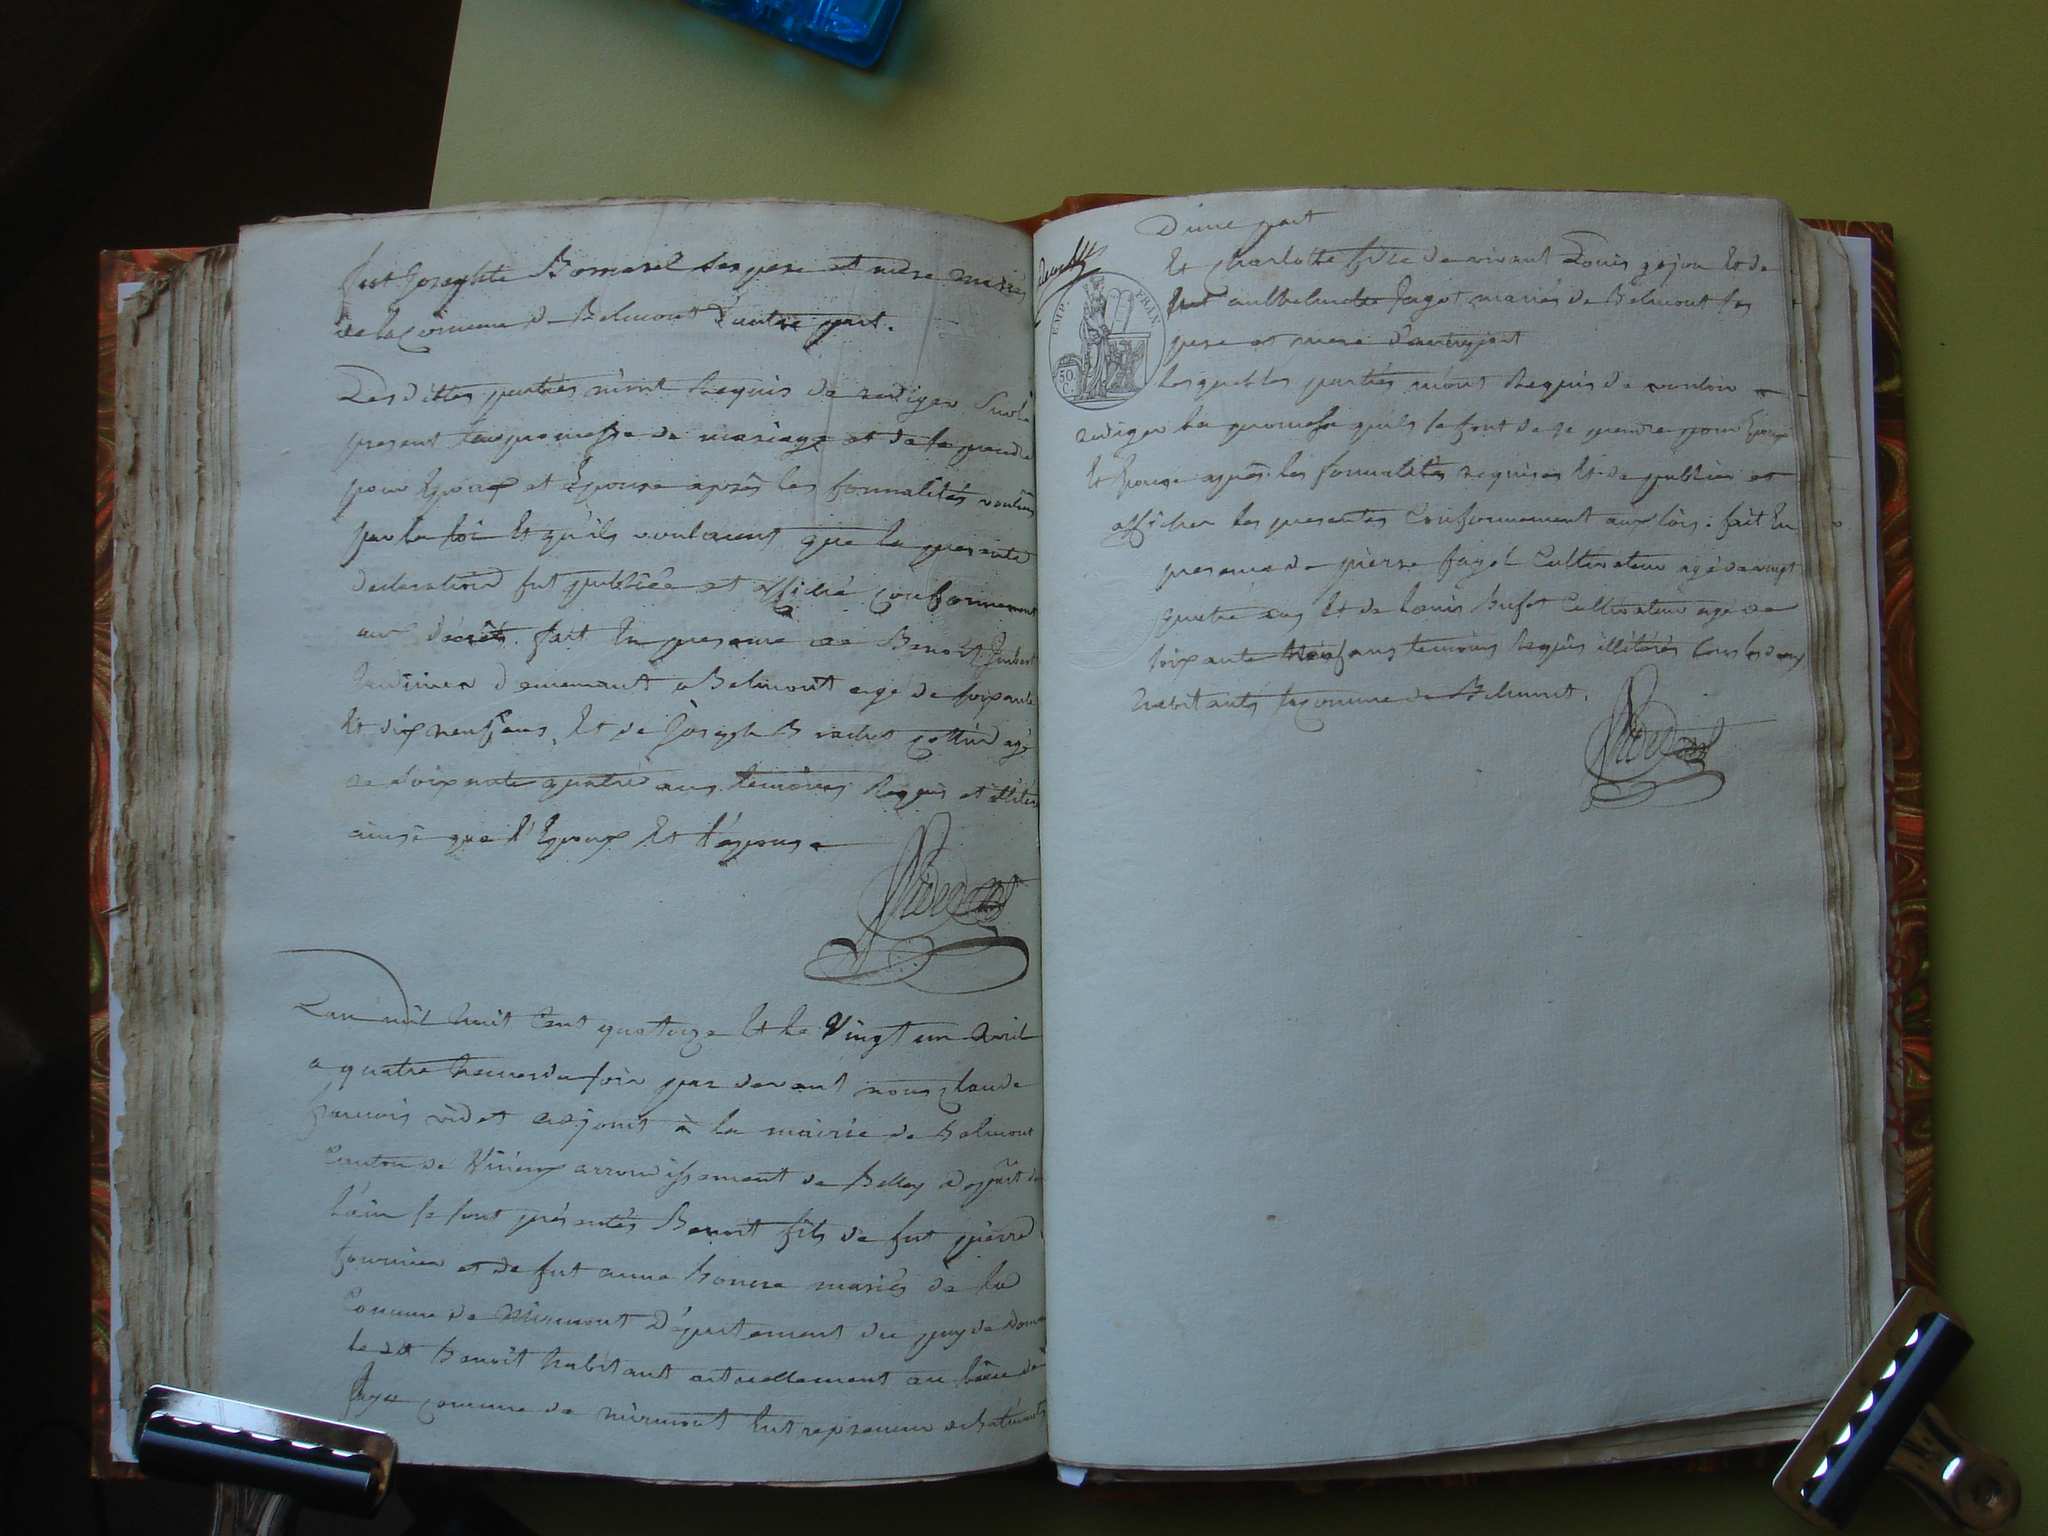 fut Josephte Bomaril ses pere et mere mariés
de la Comune de Belmont d'autre part.
Lesdittes parties m'ont Requis de rediger Sur le
present leur promesse de mariage et de se prendre
pour Epoux et Epouse après les formalités voulûes
par la loi Et qu'ils voulaient que la presente
declaration fut publiée et affiché conformement
aux décrêts. fait En presence de Benoit Jmbert
demeurant a Belmont agé de soixante
Et dix neuf ans, Et de Joseph Brachet Cottin agé
de soixante quatre ans temoins Requis et illiteré
ainsi que l'Epoux Et l'épouse
Videt
L'an mil huit Cent quatorze Et le Vingt un Avril
a quatre heures du soir par devant nous Claude
françois videt adjoint à la mairie de Belmont
Canton de Virieux arrondissement de Belley Depart du
l'ain se sont présentés Benoit fils de fut pierre
fournier et de fut anne mariés de la
Comune de Mirmont Département du puy de Dome
le dit Benoit habitant actuellement au lieu de
comune de mirmont Entrepreneur de batiments
D'une part
Et Charlotte fille de vivant Louis gojon Et de
fut anthelmette fagot mariés de Belmont ses
pere et mere d'autre part
Lesquelles parties m'ont Requis de vouloir
rediger la promesse quils se font de se prendre pour Epoux
Et Epouse après les formalités requises Et de publier et
afficher les presentes Conformement aux lois. fait En
presence de pierre fayol Cultivateur agé de vingt
quatre ans Et de Louis Bufet Cultivateur agé de
soixante neuf ans temoins Requis illitérés tous les deux
habitants la Comune de Belmont.
Videt
EMP. FRAN.
50 C.